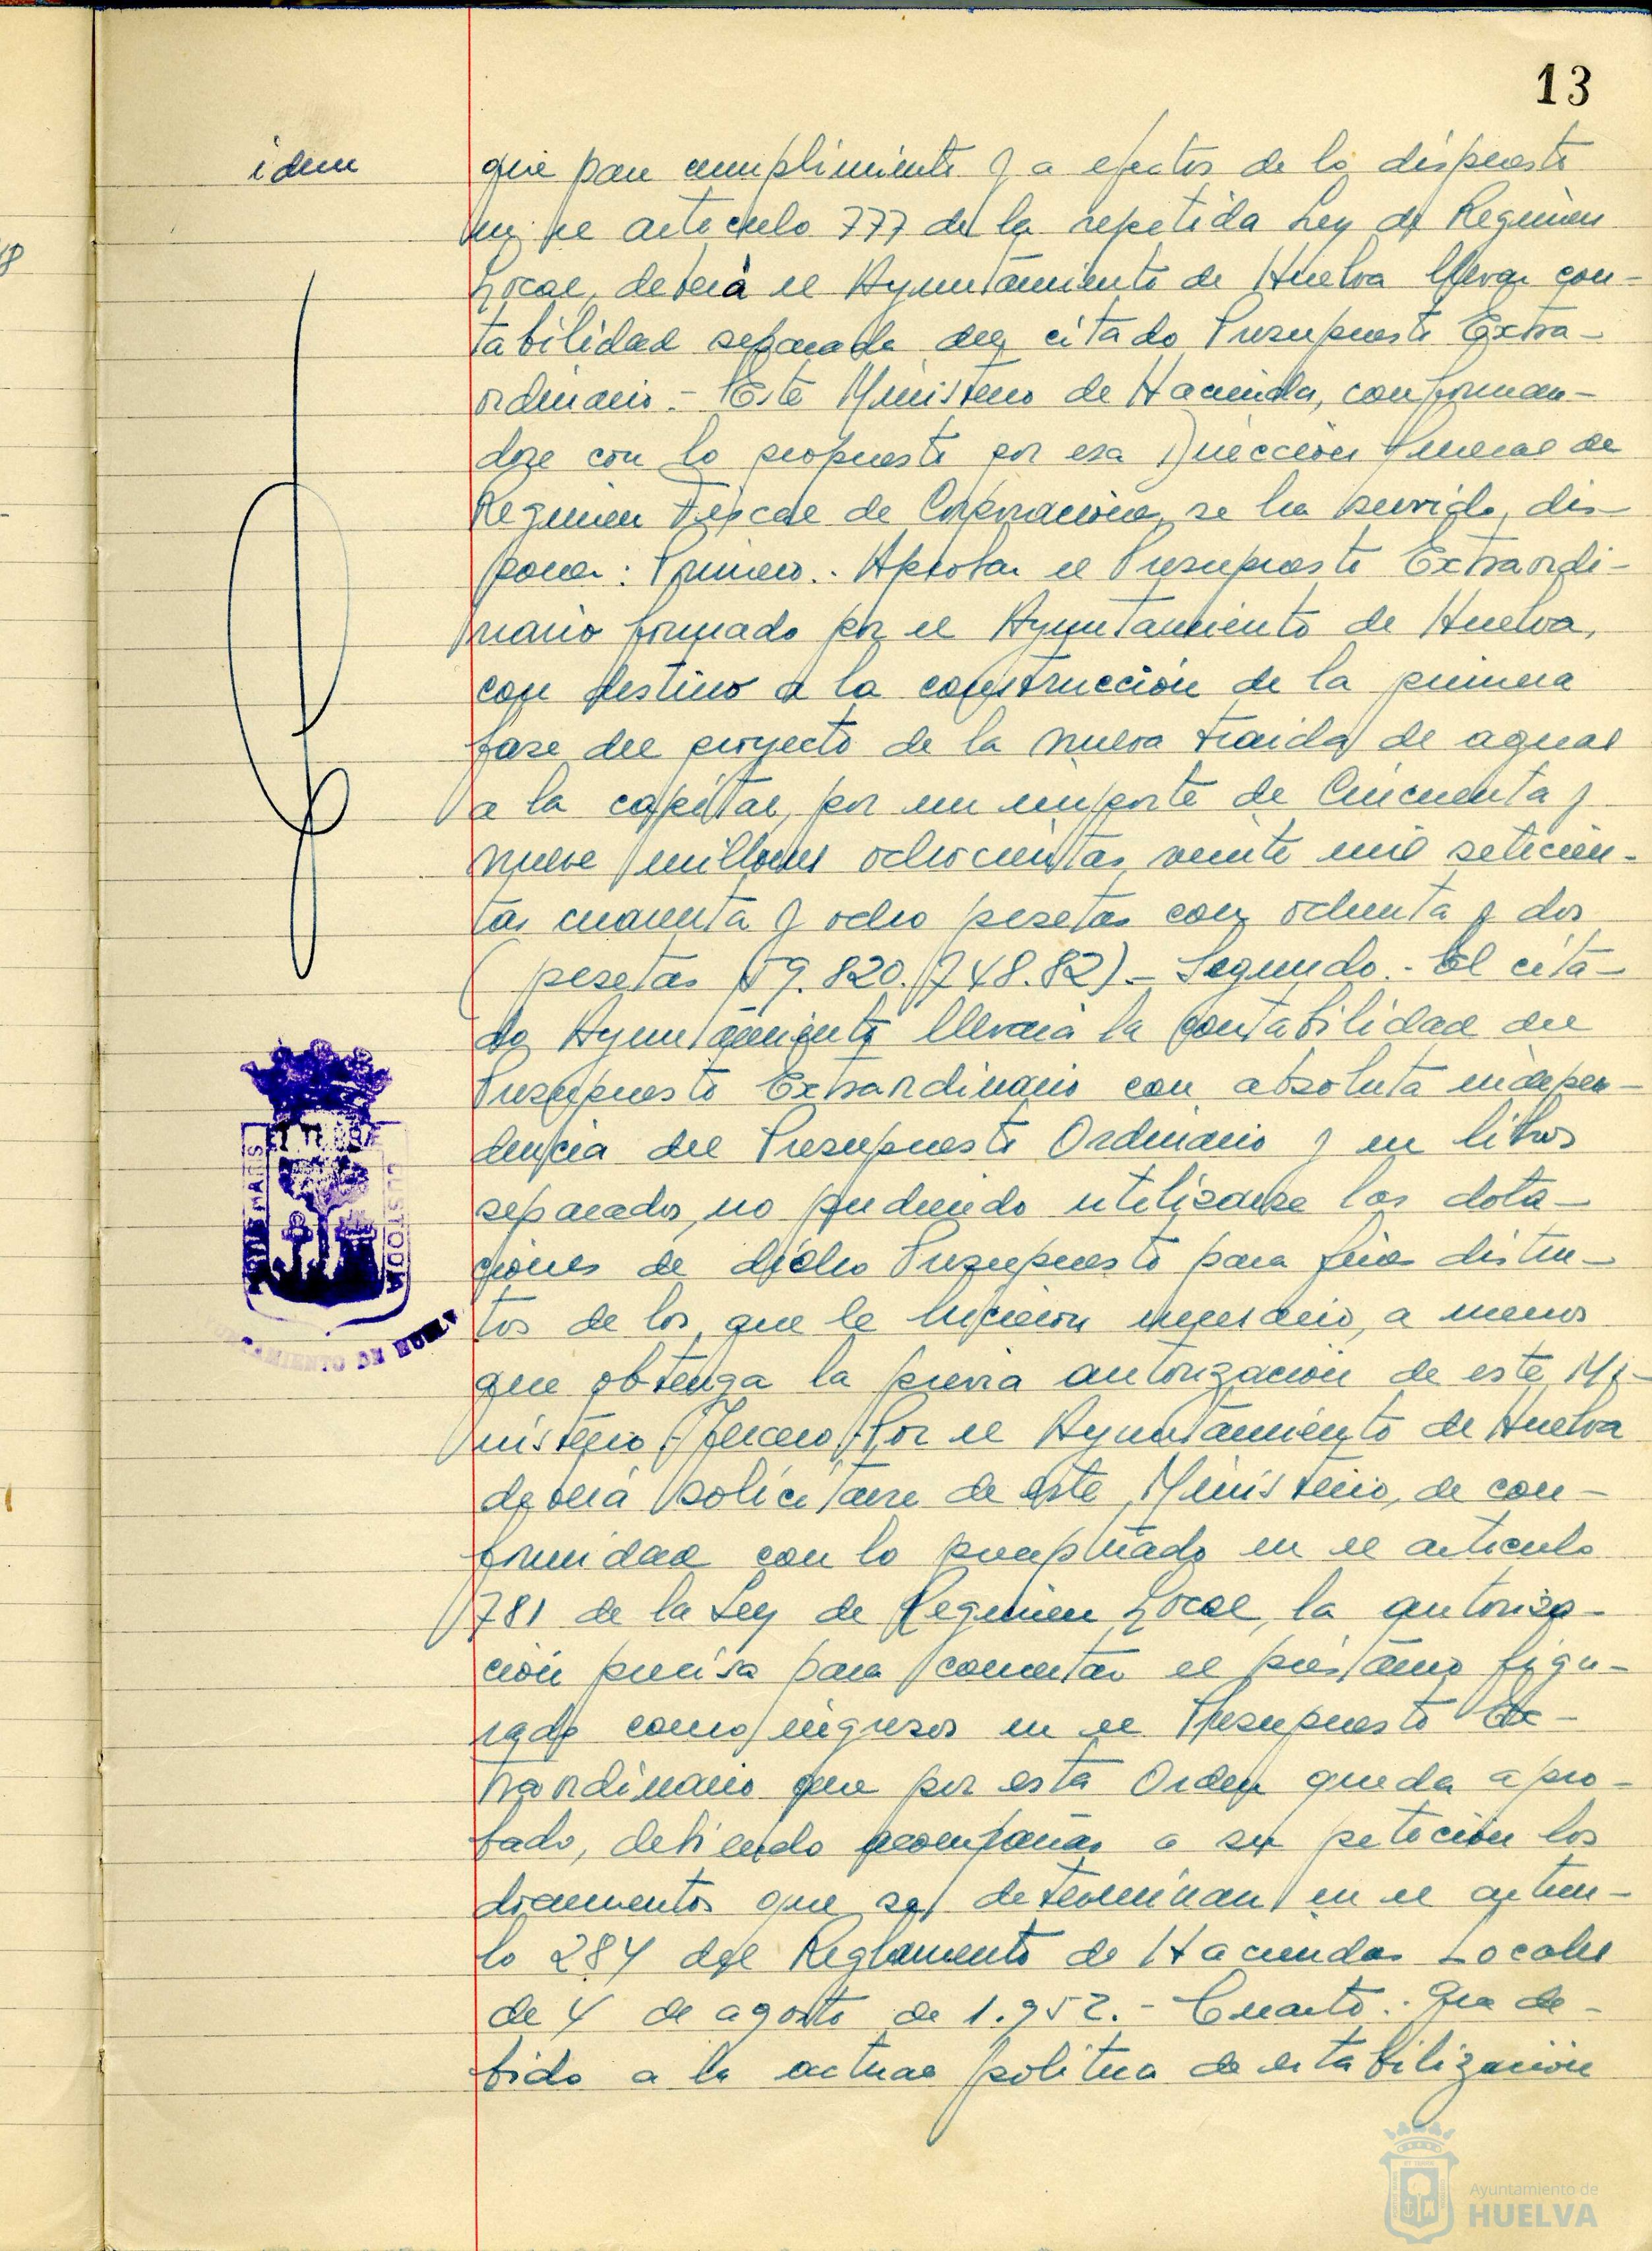 13
idem
que para cumplimiento y a efectos de lo dispuesto
en el articulo 777 de la repetida Ley de Regimen
Local, deberá el Ayuntamiento de Huelva llevar con-
tabilidad separada del citado Presupuesto Extra-
ordinario.- Este Ministerio de Hacienda, conforman-
dose con lo propuesto por esa Dirección General de
Regimen Fiscal de Corporaciones, se ha servido dis-
poner: Primero.- Aprobar el Presupuesto Extraordi-
nario formado por el Ayuntamiento de Huelva,
con destino a la construcción de la primera
fase del proyecto de la nueva traida de aguas
a la capital, por un importe de Cincuenta y
nueve millones ochocientas veinte mil setecien-
tas cuarenta y ocho pesetas con ochenta y dos
(pesetas 59.820.748.82).- Segundo.- El cita-
do Ayuntamiento llevará la contabilidad del
Presupuesto Extraordinario con absoluta indepen-
dencia del Presupuesto Ordinario y en libros
separados, no pudiendo utilizarse las dota-
ciones de dicho Presupuesto para fines distin-
tos de los que le hicieron necesario, a menos
que obtenga la previa autorización de este Mi-
nisterio.- Tercero.- Por el Ayuntamiento de Huelva
deberá solicitarse de este Ministerio, de con-
formidad con lo preceptuado en el articulo
781 de la Ley de Regimen Local, la autoriza-
ción precisa para concertar el préstamo figu-
rado como ingresos en el Presupuesto Ex-
traordinario que por esta Orden queda apro-
bado, debiendo acompañar a su petición los
documentos que se determinan en el articu-
lo 284 del Reglamento de Haciendas Locales
de 4 de agosto de 1.952.- Cuarto.- Que de-
bido a la actual politica de estabilización
PORTUS MARIS
ET TERRAE
CUSTODIA
AYUNTAMIENTO DE HUELVA
Ayuntamiento de
HUELVA